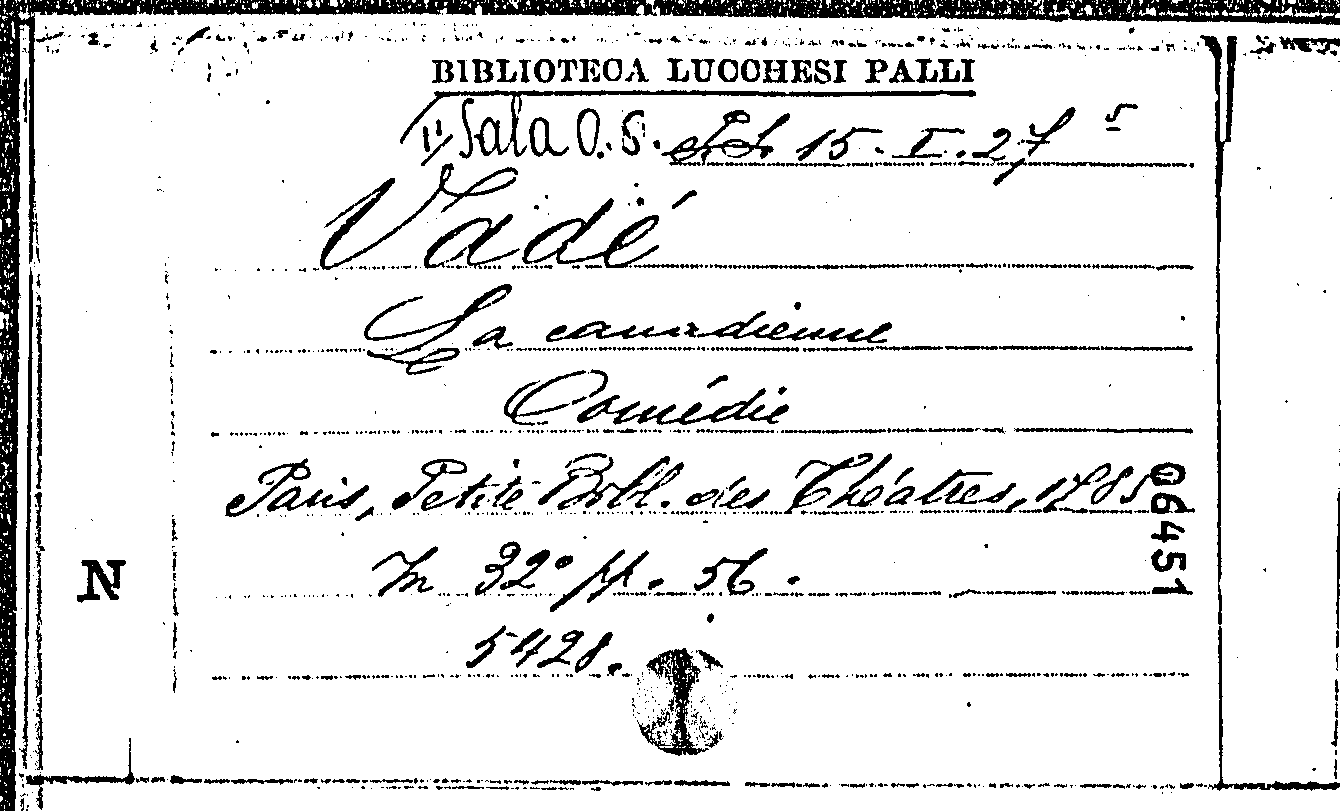 BIBLIOTECA LUCCHESI PALLI
Sala O.S. 15. I. 27 5
Vadé
La canadienne
Comédie
Paris, Petite Bibl. des Théatres, 1785
N
In 32° pp. 56.
5428.
06451